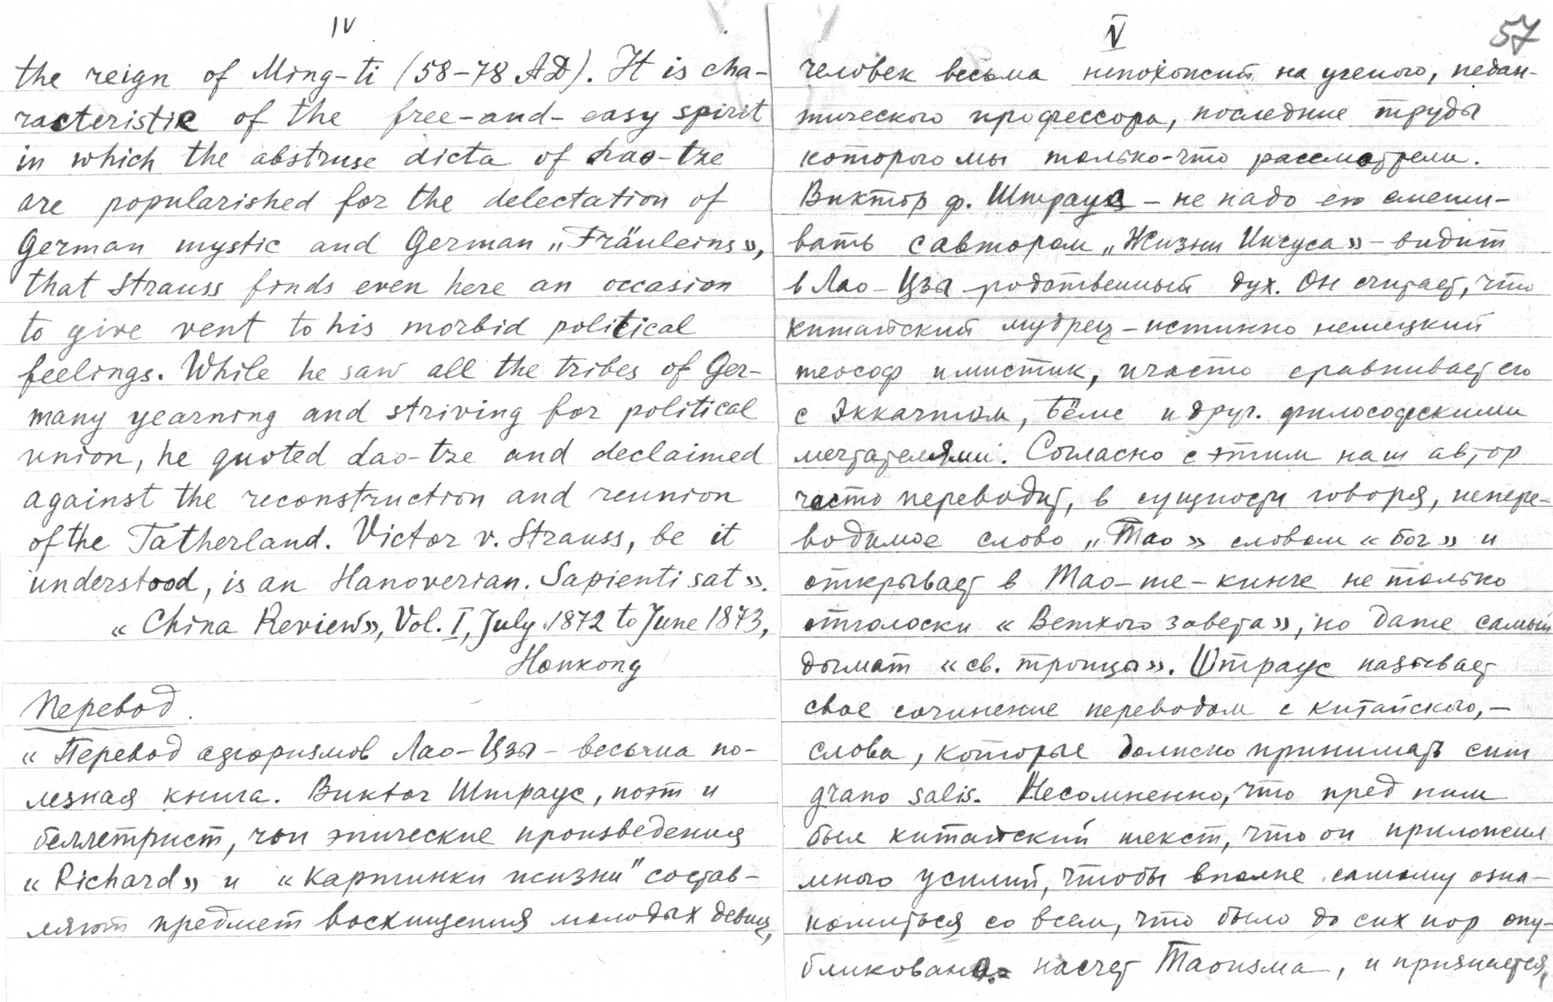 IV
the reign of Ming-ti (58-78 AD). It is cha-
racteristic of the free-and-easy spirit
in which the abstruse dicta of Lao-tze
are popularished for the delectation of
German mystic and German „Fräuleins»,
that Strauss finds even here an occasion
to give vent to his morbid political
feelings. While he saw all the tribes of Ger-
many yearning and striving for political
union, he quoted Lao-tze and declaimed
against the reconstruction and reunion
of the Fatherland. Victor v. Strauss, be it
understood, is an Hanoverian. Sapienti sat».
« China Review», Vol. I, July 1872 to June 1873,
Honkong
Перевод.
« Перевод афоризмов Лао-Цзы - весьма по-
лезная книга. Виктор Штраус, поэт и
беллетрист, чьи эпические произведения
« Richard» и « Картинки жизни" состав-
ляют предмет восхищения молодых девиц,
V
57
человек весьма непохожий на ученого, педан-
тического профессора, последние труды
которого мы только-что рассмотрели.
Виктор ф. Штраус - не надо его смеши-
вать с автором „Жизни Иисуса» - видит
в Лао-Цзы родственный дух. Он считает, что
китайский мудрец - истинно немецкий
теософ и мистик, и часто сравнивает его
с Эккартом, Бёме и друг. философскими
мечтателями. Согласно с этим наш автор
часто переводит, в сущности говоря, непере-
водимое слово „Тао» словом «Бог» и
открывает в Тао-те-кинге не только
отголоски « Ветхого завета», но даже самый
догмат «св. троицы». Штраус называет
свое сочинение переводом с китайского, -
слова, которые должно принимать cum
grano salis. Несомненно, что пред ним
был китайский текст, что он приложил
много усилий, чтобы вполне самому озна-
комиться со всем, что было до сих пор опу-
бликовано насчет Таоизма, и признается,